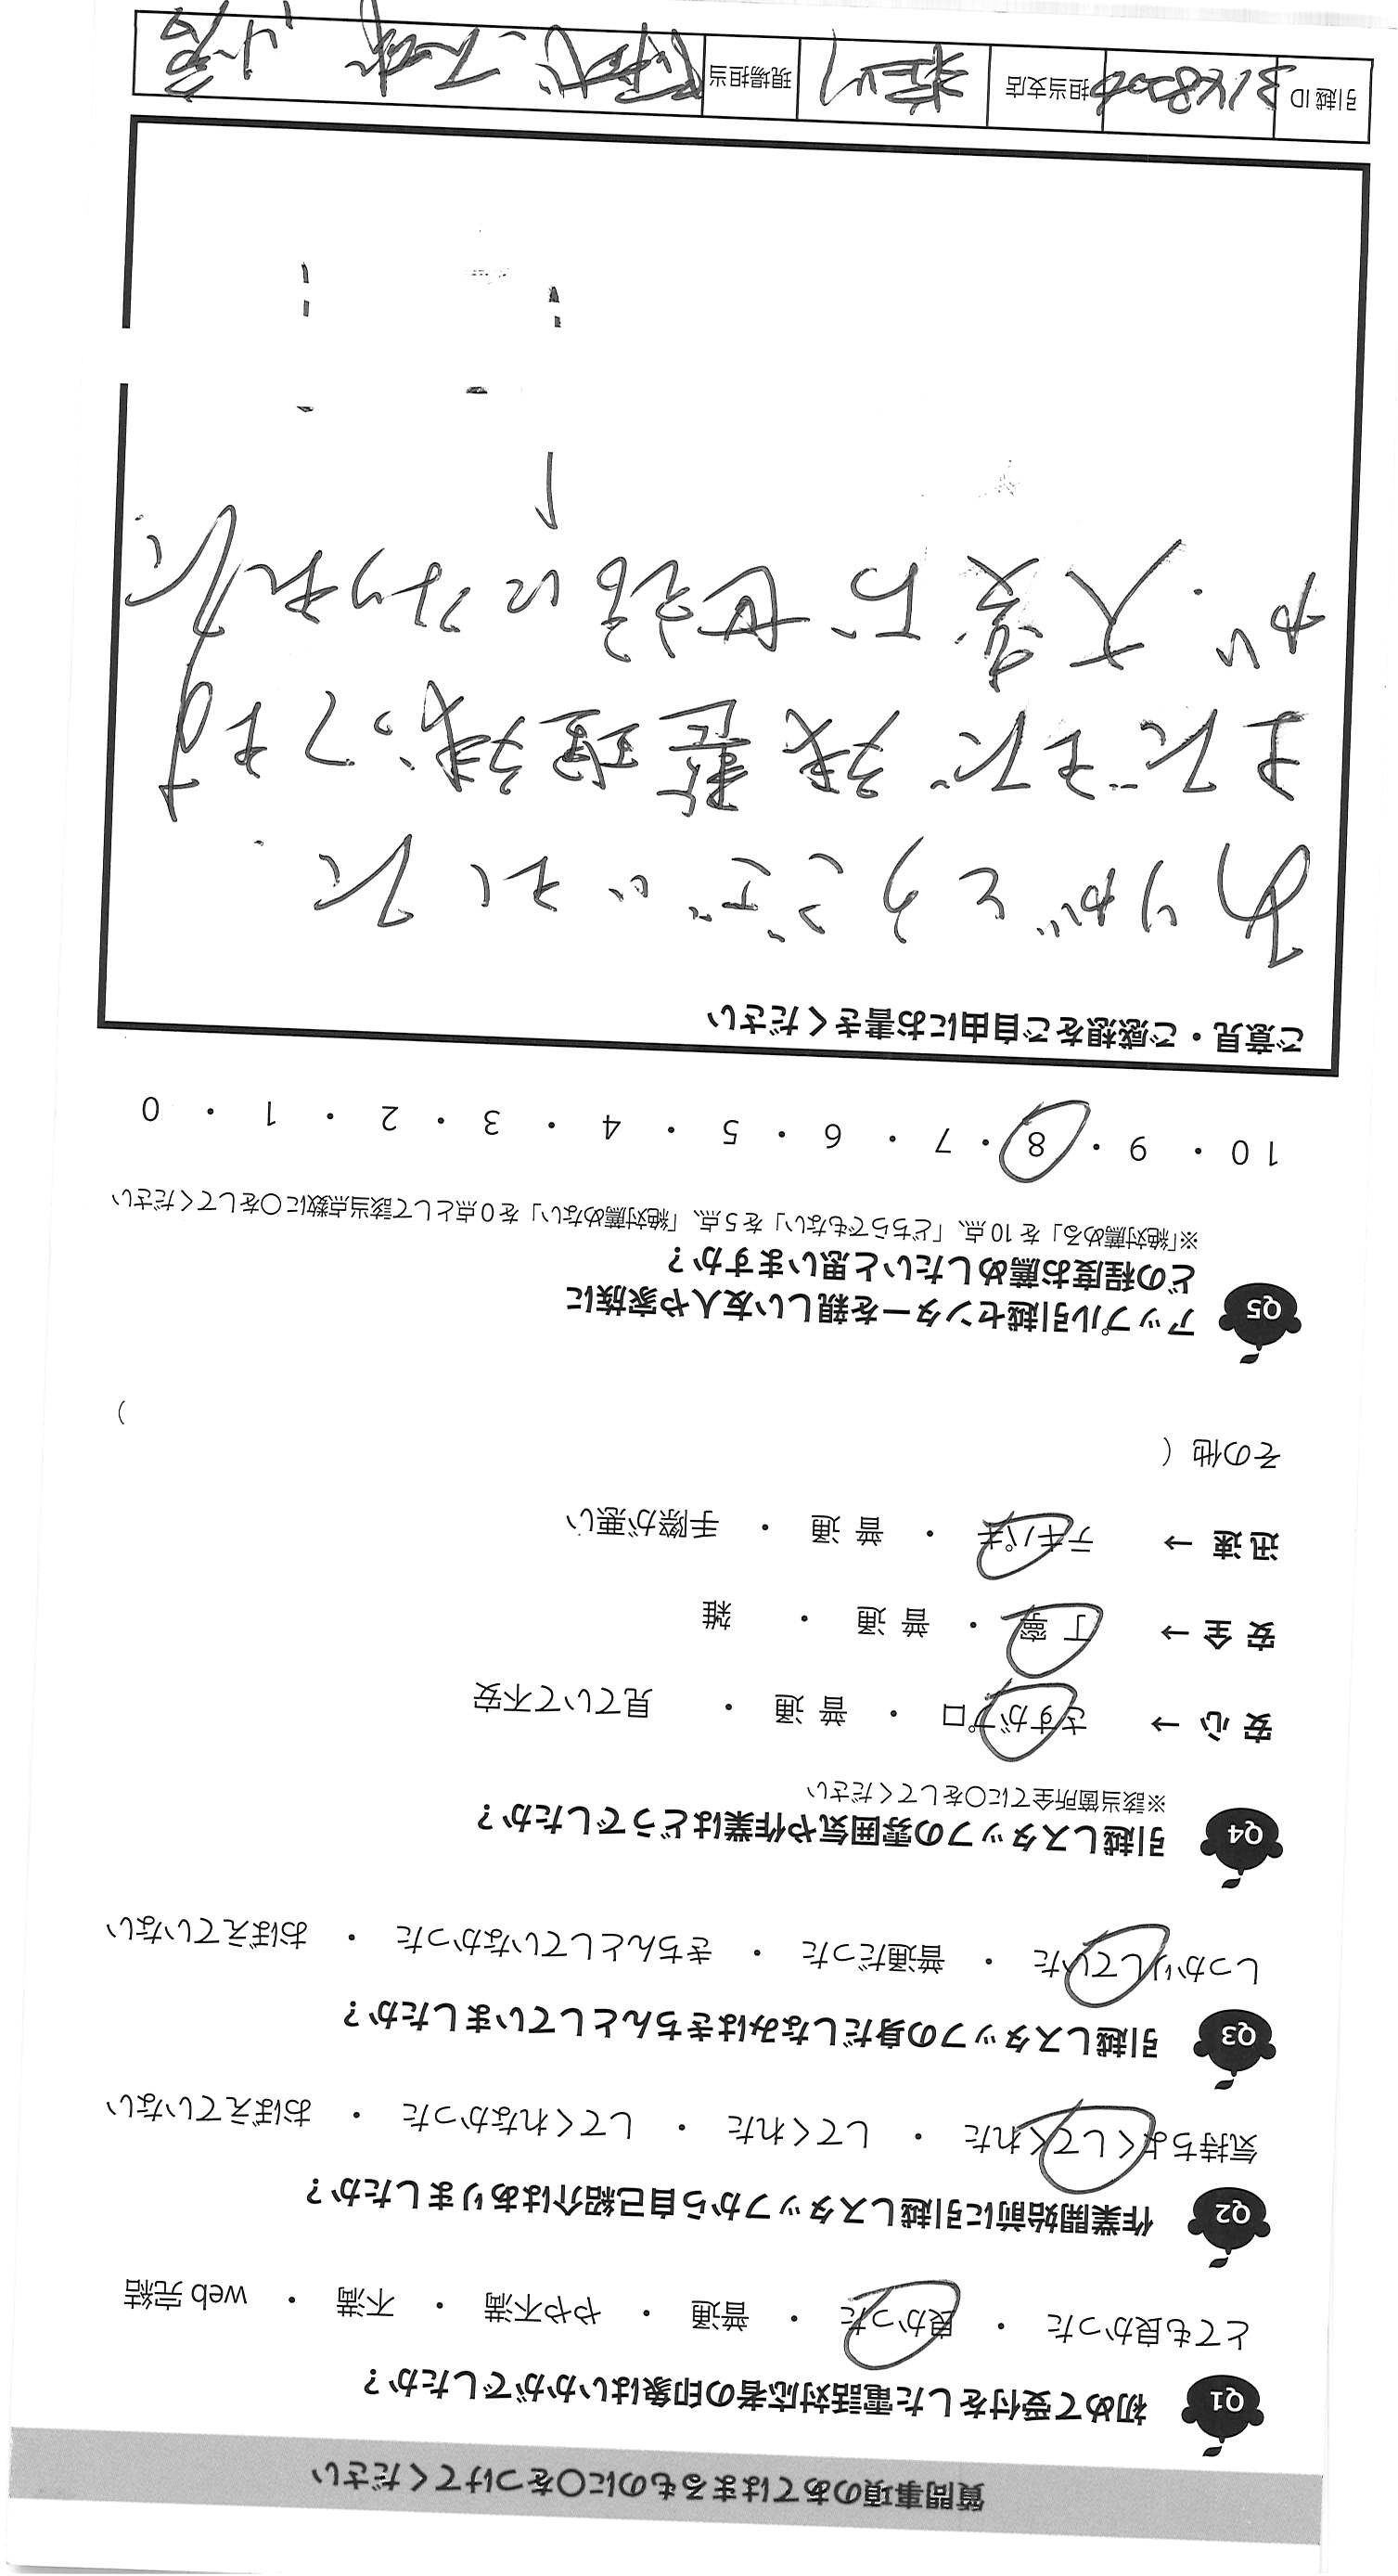 質問事項のあてはまるものに〇をつけてください
Q1 初めて受付をした電話対応者の印象はいかがでしたか？
とても良かった ・ 良かった ・ 普通 ・ やや不満 ・ 不満 ・ web 完結
Q2 作業開始前に引越しスタッフから自己紹介はありましたか？
気持ちよくしてくれた ・ してくれた ・ してくれなかった ・ おぼえていない
Q3 引越しスタッフの身だしなみはきちんとしていましたか？
しっかりしていた ・ 普通だった ・ きちんとしていなかった ・ おぼえていない
Q4 引越しスタッフの雰囲気や作業はどうでしたか？
※該当箇所全てに〇をしてください
安心→ さすがプロ ・ 普通 ・ 見ていて不安
安全→ 丁寧 ・ 普通 ・ 雑
迅速→ テキパキ ・ 普通 ・ 手際が悪い
その他（ ）
Q5 アップル引越センターを親しい友人や家族に
どの程度お薦めしたいと思いますか？
※「絶対薦める」を10点、「どちらでもない」を5点、「絶対薦めない」を0点として該当点数に〇をしてください
10 ・ 9 ・ 8 ・ 7 ・ 6 ・ 5 ・ 4 ・ 3 ・ 2 ・ 1 ・ 0
ご意見・ご感想をご自由にお書きください
ありがとうございました
まだまだ 整理
が、大変お世話になりました
引越ID 担当支店 現場担当